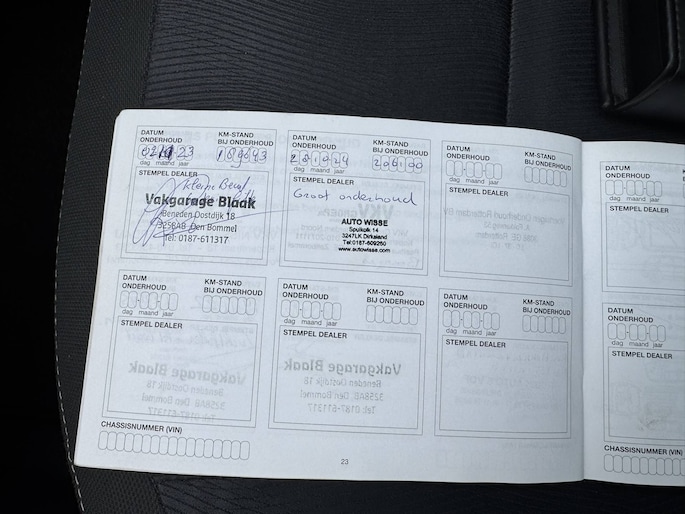 DATUM ONDERHOUD
KM-STAND BIJ ONDERHOUD
23
189643
dag maand jaar
STEMPEL DEALER
Vakgarage Blaak
Beneden Oostdijk 18
3258AB Den Bommel
Tel: 0187-611317
DATUM ONDERHOUD
KM-STAND BIJ ONDERHOUD
24
dag maand jaar
STEMPEL DEALER
Groot onderhoud
AUTO WISSE
Spuikolk 14
3247LK Dirksland
Tel:0187-609250
www.autowisse.com
DATUM ONDERHOUD
KM-STAND BIJ ONDERHOUD
dag maand jaar
STEMPEL DEALER
DATUM ONDERHOUD
dag maand jaar
STEMPEL DEALER
DATUM ONDERHOUD
KM-STAND BIJ ONDERHOUD
dag maand jaar
STEMPEL DEALER
DATUM ONDERHOUD
KM-STAND BIJ ONDERHOUD
dag maand jaar
STEMPEL DEALER
DATUM ONDERHOUD
KM-STAND BIJ ONDERHOUD
dag maand jaar
STEMPEL DEALER
DATUM ONDERHOUD
dag maand jaar
STEMPEL DEALER
CHASSISNUMMER (VIN)
23
CHASSISNUMMER (VIN)